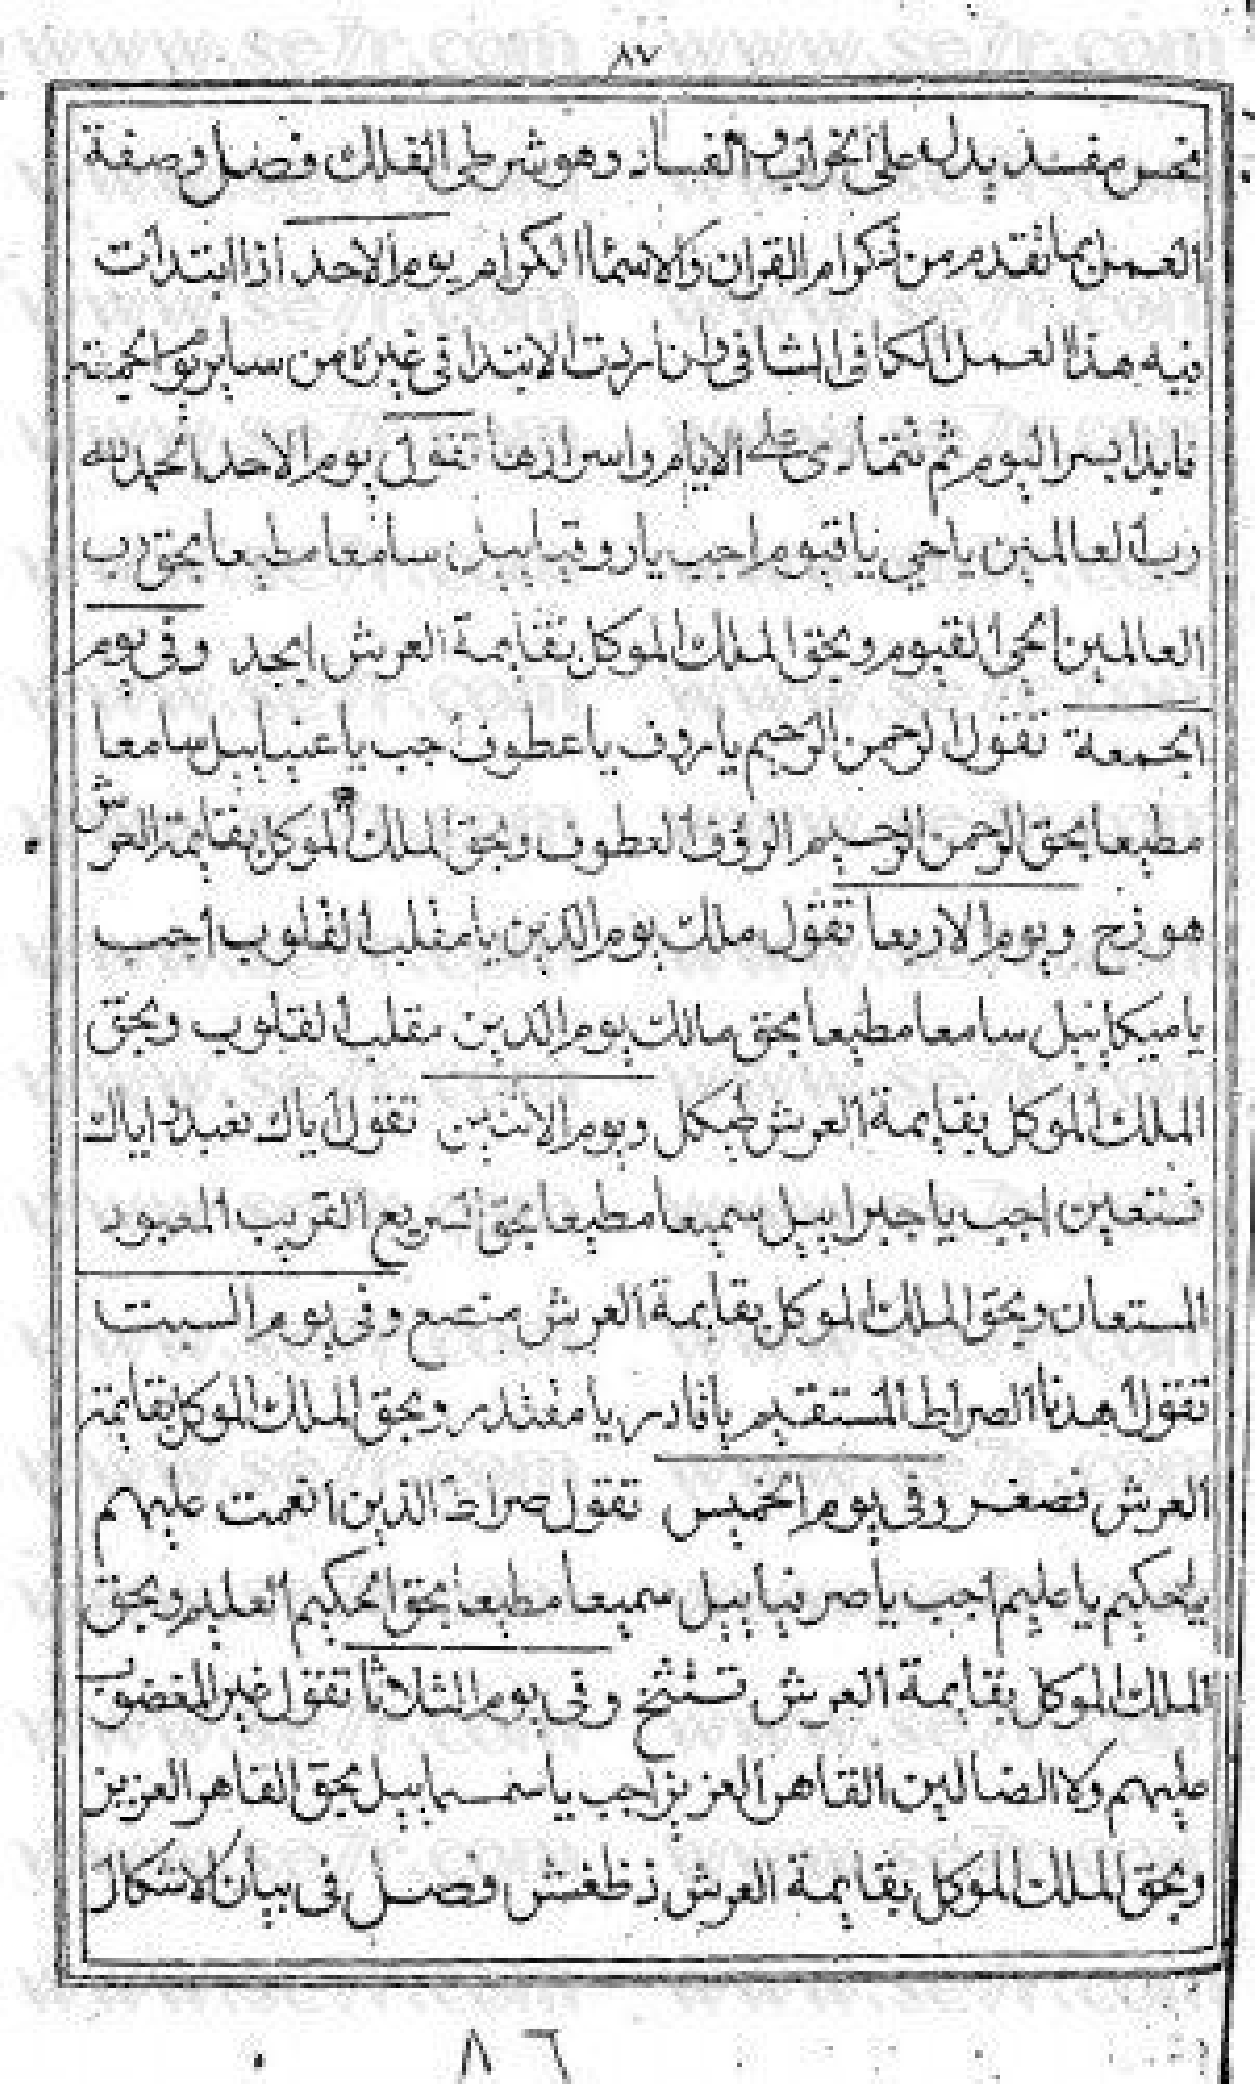 ٨٧
نحس مفسد يدل على الخراب والفساد وهو شرطى الفلك فصل وصفة
العمل بما تقدم من تكرام القران والاسما الكرام يوم الاحد اذا ابتدات
فيه هذا العمل الكافى الشافى وان اردت الابتدا فى غيره من ساير يوم الجمعة
فابدا بسر اليوم ثم تتمادى على الايام واسرارها تقول يوم الاحد الحمد لله
رب العالمين ياحي ياقيوم اجب يا روقيابيل سامعا مطيعا بحق رب
العالمين الحى القيوم وبحق الملك الموكل بقايمة العرش ابجد وفى يوم
الجمعة تقول الرحمن الرحيم يا روف يا عطوف اجب يا عنيابيل سامعا
مطيعا بحق الرحمن الرحيم الرؤف العطوف وبحق الملك الموكل بقايمة العرش
هوزح ويوم الاربعا تقول ملك يوم الدين يا مقلب القلوب اجب
يا ميكاييل سامعا مطيعا بحق مالك يوم الدين مقلب القلوب وبحق
الملك الموكل بقايمة العرش طيكل ويوم الاثنين تقول اياك نعبد واياك
نستعين اجب يا جبراييل سميعا مطيعا بحق السريع القريب المعبود
المستعان وبحق الملك الموكل بقايمة العرش منصع وفى يوم السبت
تقول اهدنا الصراط المستقيم يا قادر يا مقتدر وبحق الملك الموكل بقايمة
العرش فصقر وفى يوم الخميس تقول صراط الذين انعمت عليهم
يا حكيم يا عليم اجب يا صرفيابيل سميعا مطيعا بحق الحكيم العليم وبحق
الملك الموكل بقايمة العرش تشثخ وفى يوم الثلاثا تقول غير المغضوب
عليهم ولا الضالين القاهر العزيز اجب يا سمسمابيل بحق القاهر العزيز
وبحق الملك الموكل بقايمة العرش ذظغش فصل فى بيان الاشكال
٨٦
www.se7r.com www.se7r.com